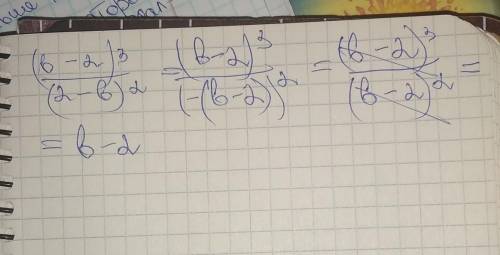 (в - 2)³/(2 - в)² = (в - 2)³/(-(в - 2))² = (в - 2)³/(в - 2)² =
= в - 2